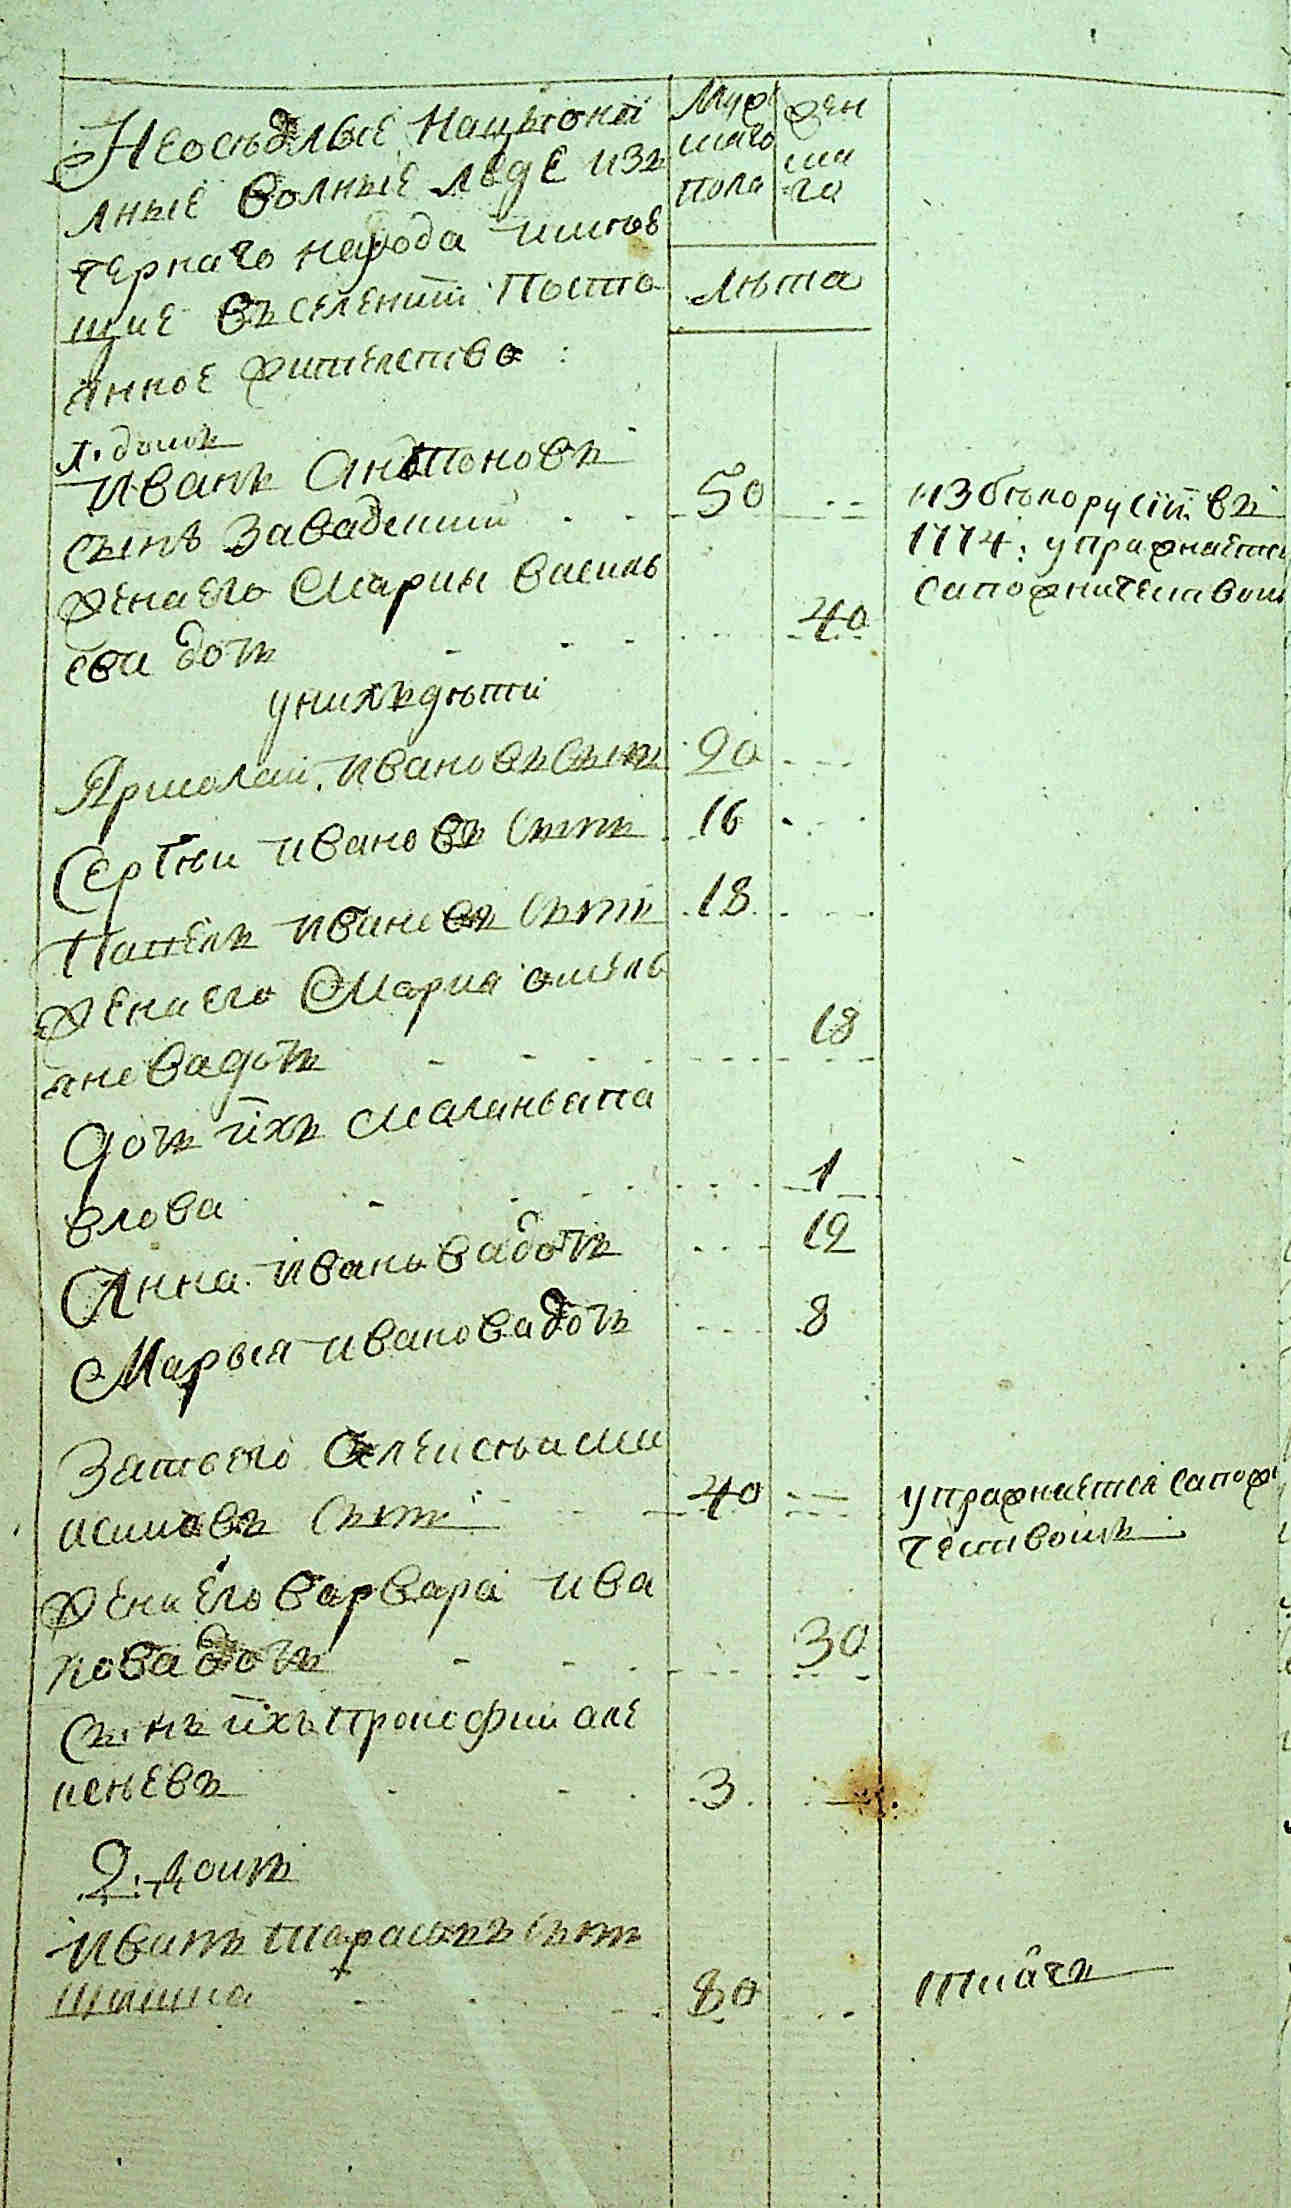 Неосѣдлые націонал
лные волные люде изъ
чернаго народа имѣю
щие въ селении Посто
янное жителство
Муж
скаго
пола
жен
ска
го
лѣта
1. домъ
иванъ Антоновъ
сынъ Завадский
50
из белоруси въ
1774: упражнѣется
сапожничествомъ
жена его Марья василь
ева дочъ
40
у нихъ дѣти
Ярмолай ивановъ сынъ 20
Сергѣй ивановъ сынъ 16
Павелъ ивановъ сынъ 18
жена его Мария омель
янова дочъ
18
дочъ ихъ Маланья па
влова
1
Анна иванова дочъ 12
Марья иванова дочъ 8
Зять его Алексѣй ма
ксимовъ сынъ
40
упражнѣется сапож
чествомъ
жена его варвара ива
нова дочъ
30
сынъ ихъ прокофий але
ксѣевъ
3
2. домъ
иванъ тарасовъ сынъ
80
ткачъ